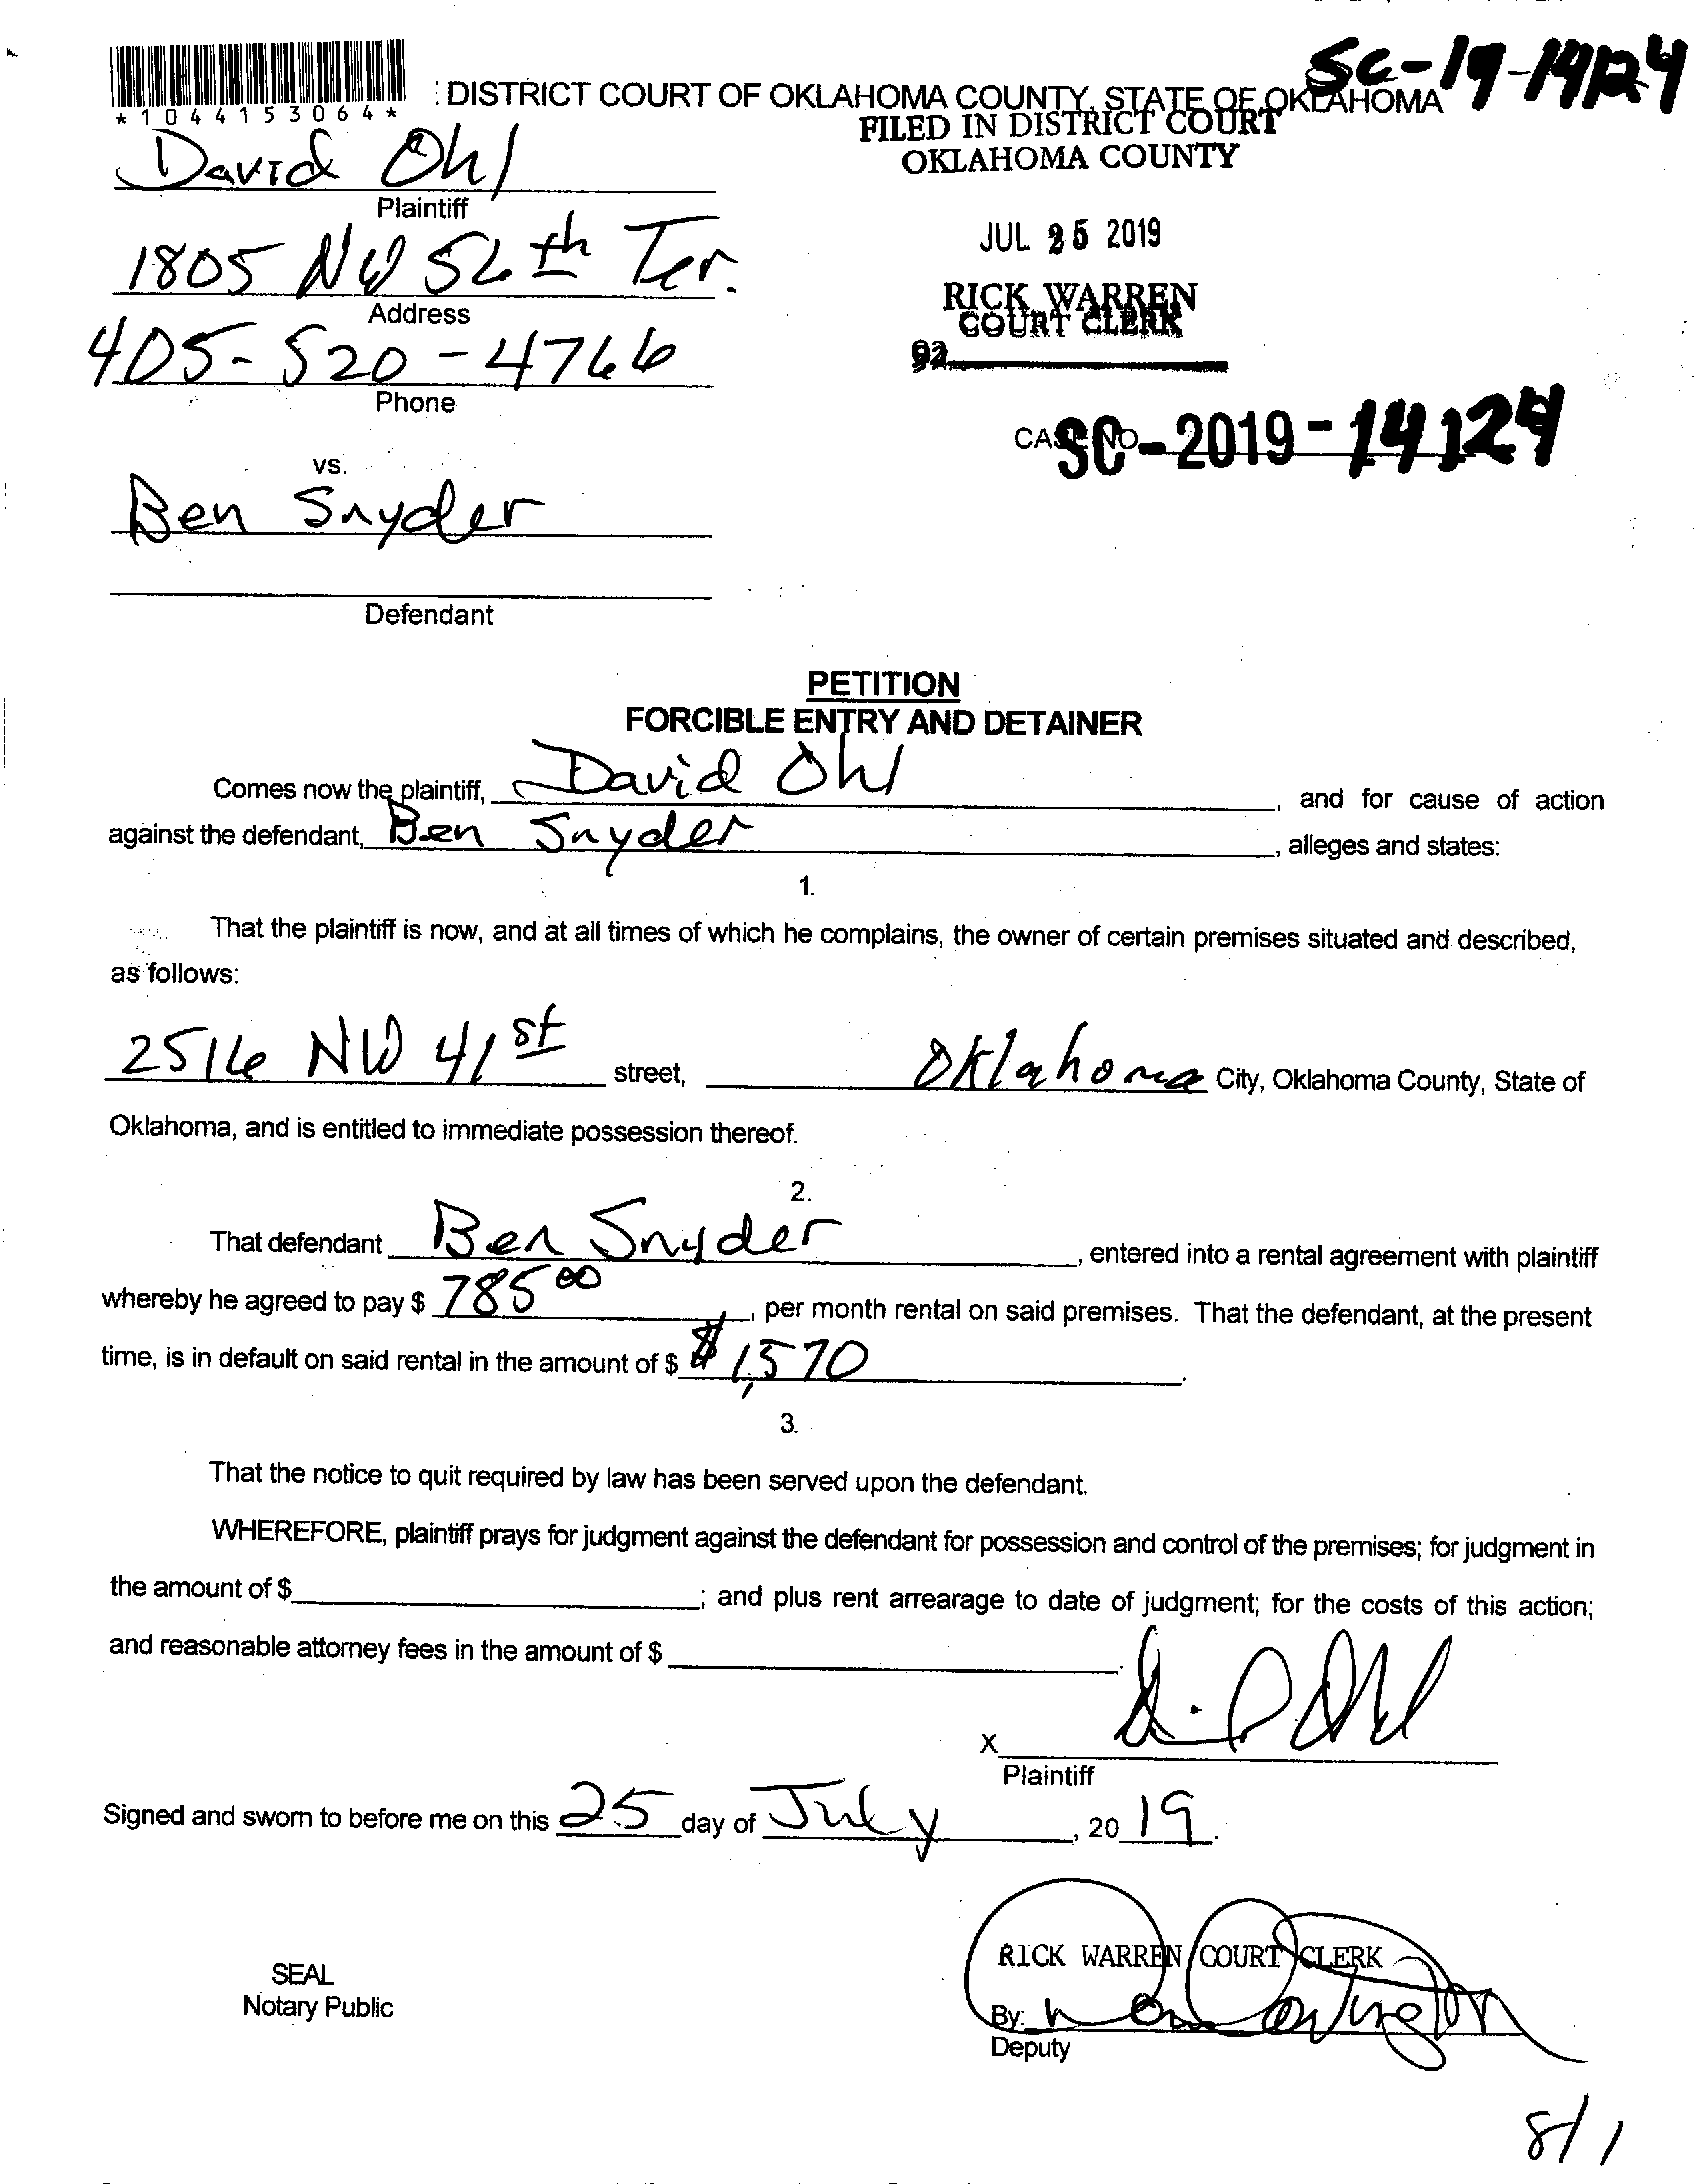 SC-19-14124
*1044153064*
: DISTRICT COURT OF OKLAHOMA COUNTY, STATE OF OKLAHOMA
FILED IN DISTRICT COURT
OKLAHOMA COUNTY
David Ohl
Plaintiff
JUL 25 2019
1805 NW 56th Ter.
Address
RICK WARREN
COURT CLERK
405-520-4766
Phone
92
CASE NO.
SC-2019-14124
vs.
Ben Snyder
Defendant
PETITION
FORCIBLE ENTRY AND DETAINER
Comes now the plaintiff, David Ohl, and for cause of action
against the defendant, Ben Snyder, alleges and states:
1.
That the plaintiff is now, and at all times of which he complains, the owner of certain premises situated and described,
as follows:
2516 NW 41st street, Oklahoma City, Oklahoma County, State of
Oklahoma, and is entitled to immediate possession thereof.
2.
That defendant Ben Snyder, entered into a rental agreement with plaintiff
whereby he agreed to pay $ 785 00, per month rental on said premises. That the defendant, at the present
time, is in default on said rental in the amount of $ $1,570.
3.
That the notice to quit required by law has been served upon the defendant.
WHEREFORE, plaintiff prays for judgment against the defendant for possession and control of the premises; for judgment in
the amount of $ ; and plus rent arrearage to date of judgment; for the costs of this action;
and reasonable attorney fees in the amount of $ .
X
Plaintiff
Signed and sworn to before me on this 25 day of July, 20 19.
RICK WARREN COURT CLERK
SEAL
Notary Public
By:
Deputy
8/1